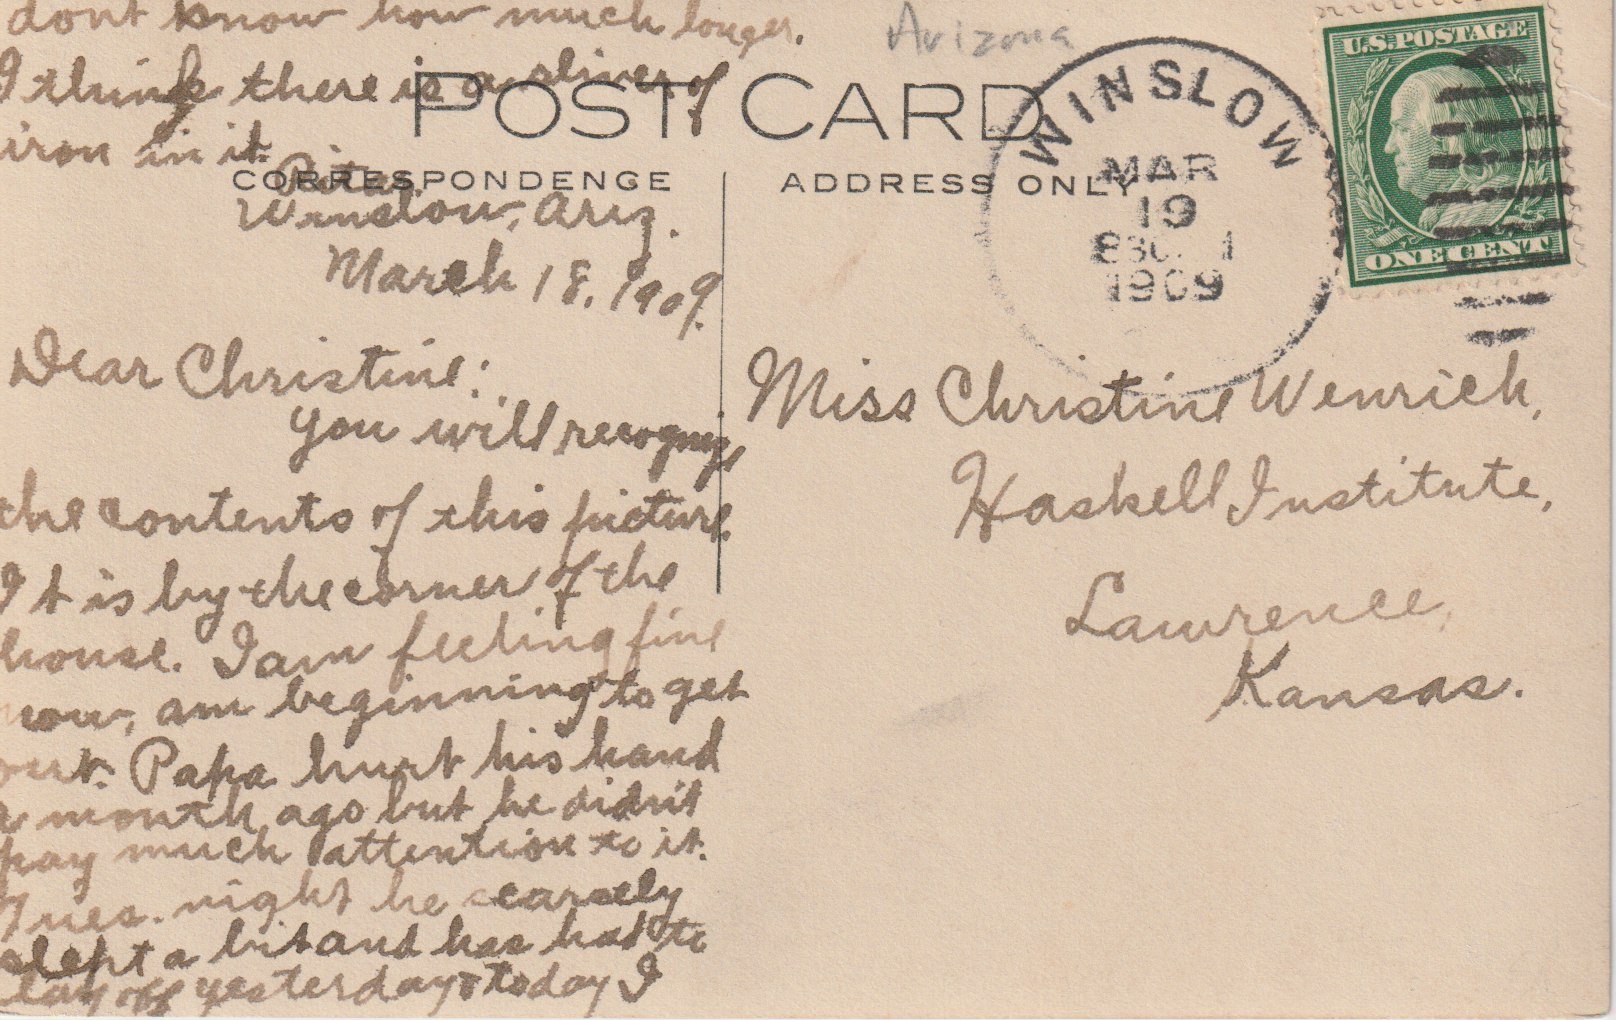 dont know how much longer.
I think there is a sliver of
iron in it.
Rita.
Arizona
POST CARD
CORRESPONDENCE
ADDRESS ONLY
WINSLOW
MAR
19
1909
U.S. POSTAGE
ONE CENT
Winslow, Ariz.
March 18, 1909.
Dear Christine:
You will recognize
the contents of this picture.
It is by the corner of the
house. I am feeling fine
now, am beginning to get
out. Papa hurt his hand
a month ago but he didn't
pay much attention to it.
Tues. night he scarcely
slept a bit and has had to
lay off yesterday & today I
Miss Christine Wenrich,
Haskell Institute,
Lawrence,
Kansas.